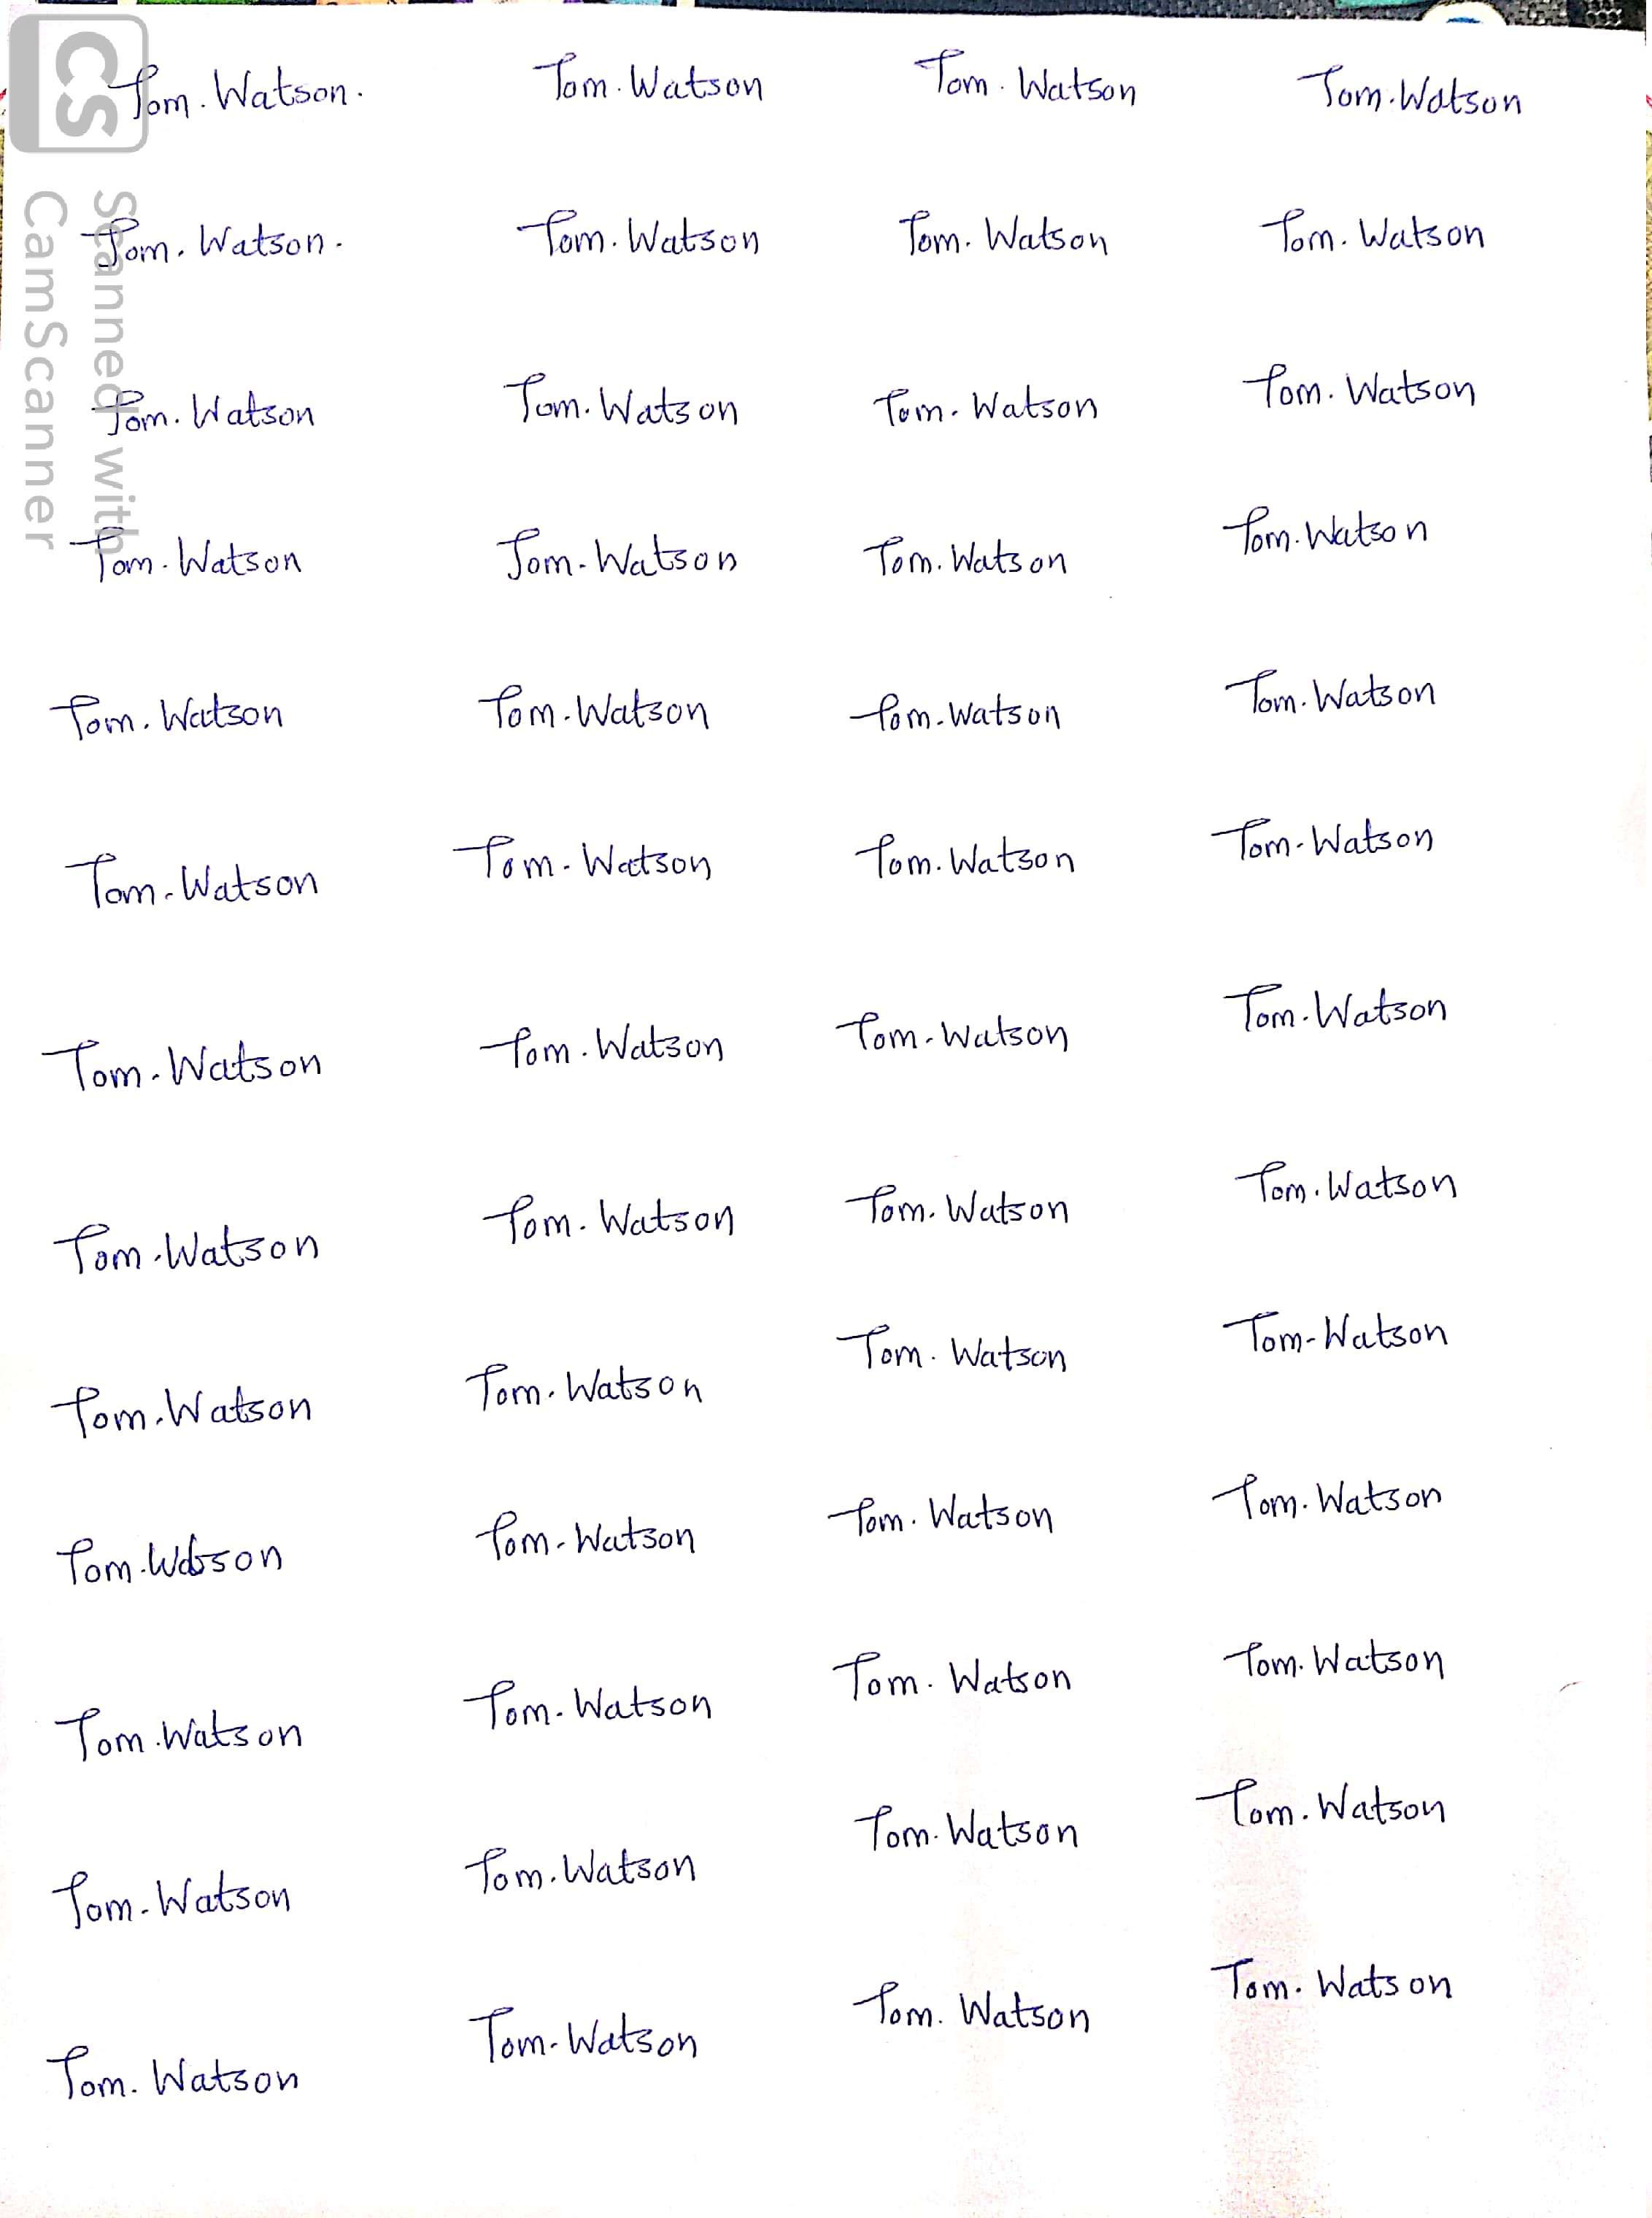 CS Scanned with
CamScanner
Tom. Watson. Tom. Watson Tom. Watson Tom. Watson
Tom. Watson. Tom. Watson Tom. Watson Tom. Watson
Tom. Watson Tom. Watson Tom. Watson Tom. Watson
Tom. Watson Tom. Watson Tom. Watson Tom. Watson
Tom. Watson Tom. Watson Tom. Watson Tom. Watson
Tom. Watson Tom. Watson Tom. Watson Tom. Watson
Tom. Watson Tom. Watson Tom. Watson Tom. Watson
Tom. Watson Tom. Watson Tom. Watson Tom. Watson
Tom. Watson Tom. Watson Tom. Watson Tom-Watson
Tom. Watson Tom. Watson Tom. Watson Tom. Watson
Tom. Watson Tom. Watson Tom. Watson Tom. Watson
Tom. Watson Tom. Watson Tom. Watson Tom. Watson
Tom. Watson Tom. Watson Tom. Watson Tom. Watson